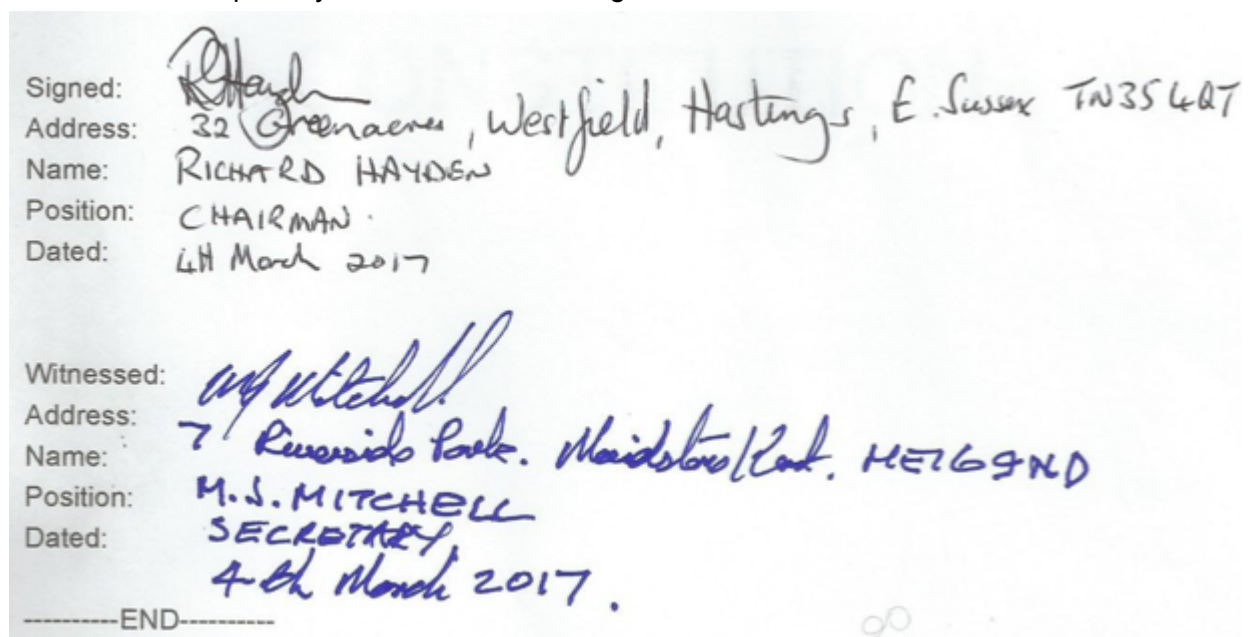 Signed: RHayden
Address: 32 Greenacres, Westfield, Hastings, E. Sussex TN35 4QT
Name: RICHARD HAYDEN
Position: CHAIRMAN.
Dated: 4th March 2017
Witnessed: MJ Mitchell
Address: 7 Riverside Park. Maidstone/Kent. ME16 9ND
Name: M.J. MITCHELL
Position: SECRETARY,
Dated: 4th March 2017.
----------END----------